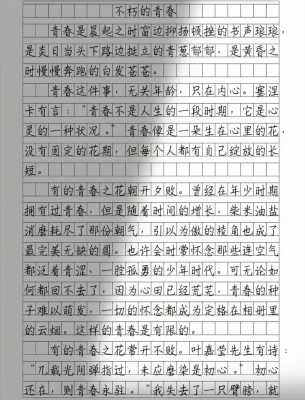 不朽的青春
青春是晨起之时窗边抑扬顿挫的书声琅琅，
是炎日当头下路边挺立的青葱郁郁，是黄昏之
时慢慢奔跑的白发苍苍。
青春这件事，无关年龄，只在内心。塞涅
卡有言：“青春不是人生的一段时期，它是心
灵的一种状况。”青春像是一朵生在心里的花，
没有固定的花期，但每个人都有自己绽放的长
短。
有的青春之花朝开夕败。曾经在年少时期
拥有过青春，但是随着时间的增长，柴米油盐
消磨耗尽了那份朝气，引以为傲的棱角也成了
最完美无缺的圆。也许会时常怀念那些连空气
都泛着青涩，一腔孤勇的少年时代。可无论如
何都回不去了，因为心田已经荒芜，青春的种
子难以萌发，一切的怀念都成为定格在相册里
的云烟。这样的青春是有限的。
有的青春之花常开不败。叶嘉莹先生有诗：
“几载光阴弹指过，未应磨染是初心。”初心
还在，则青春永驻。“我失去了一只臂膀，就